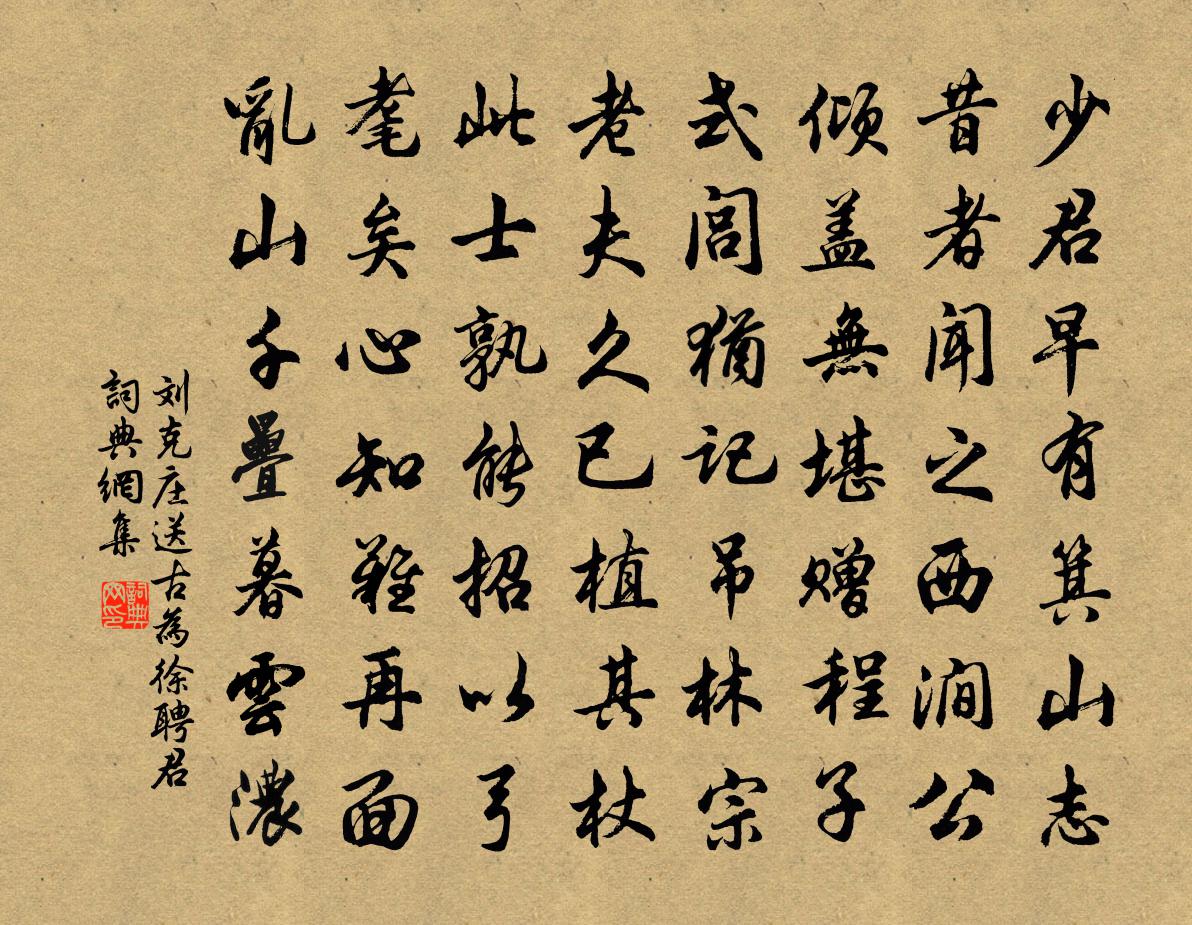 少君早有箕山志
昔者闻之西涧公
倾盖無堪赠程子
式闾猶记吊林宗
老夫久已植其杖
此士孰能招以弓
耄矣心知难再面
亂山千疊暮雲濃
刘克庄送古為徐聘君
詞典網集
詞典
网印